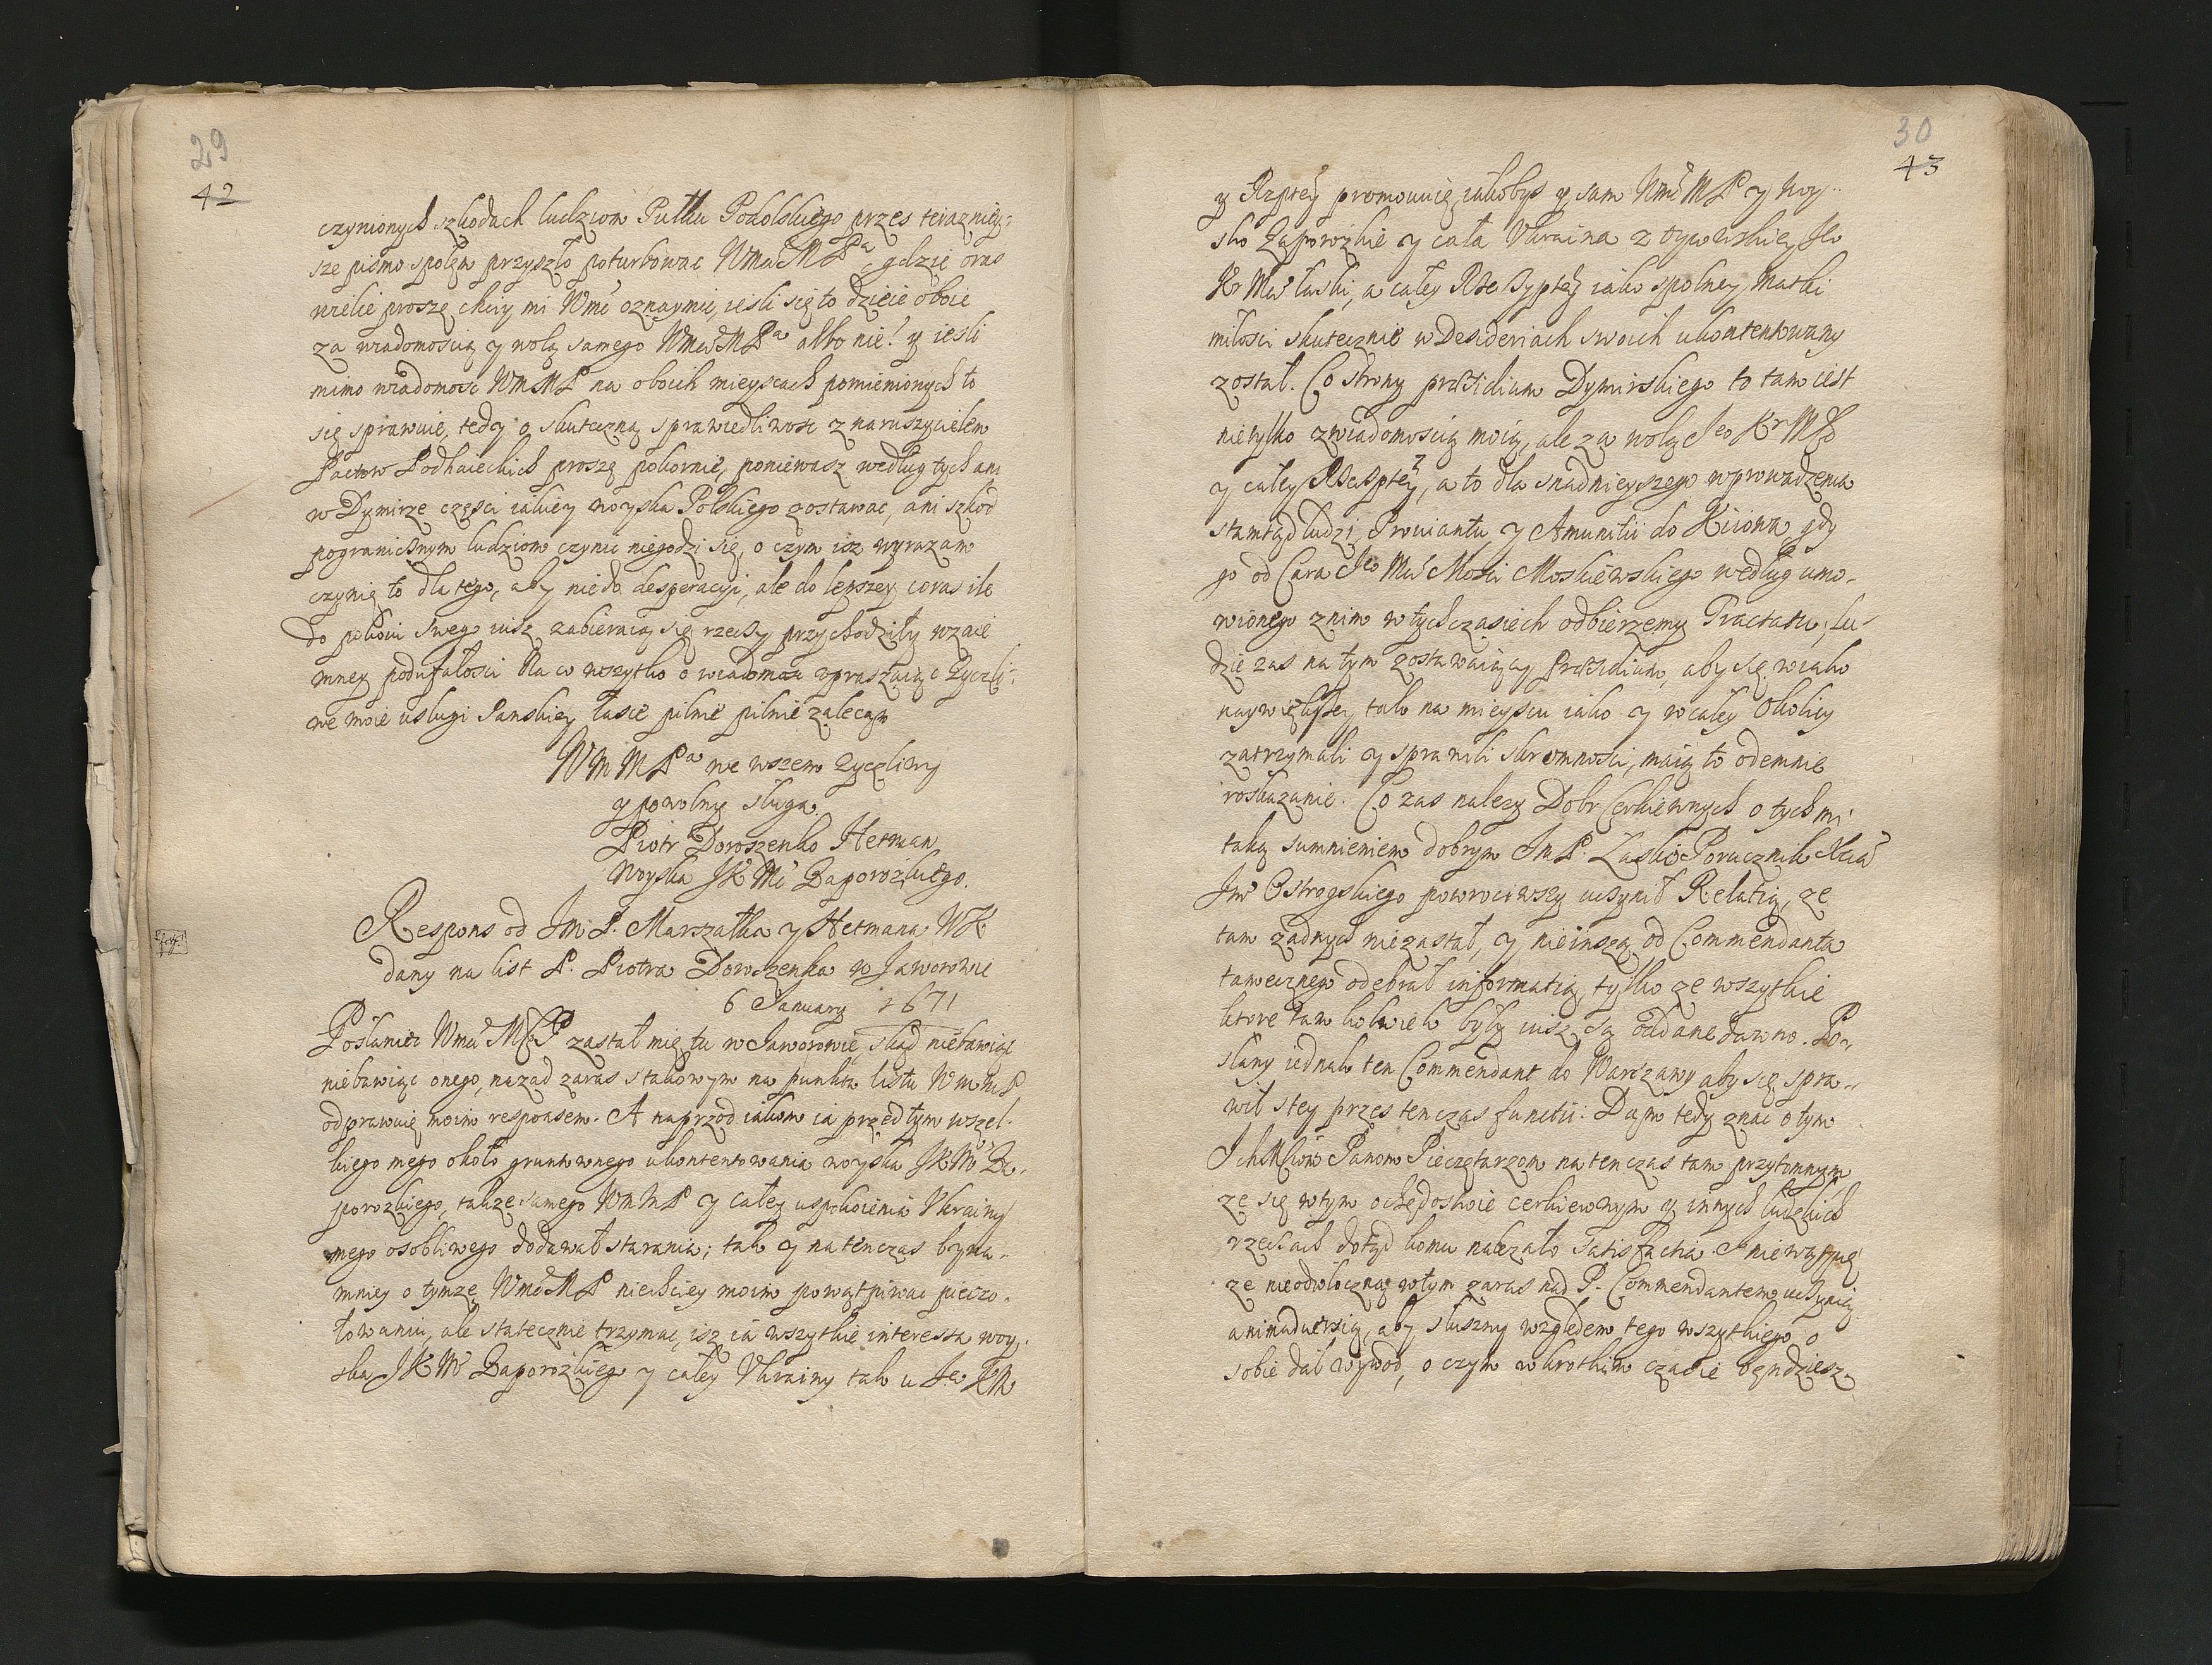 29
42
czynionych szkodach ludziom Pułku Podolskiego przes terazniey-
sze pismo społem przyszło poturbowac WmcMPa, gdzie oras
wielie proszę chciey mi Wmc oznaymic, iesli się to dzieie oboie
za wiadomoscią y wolą samego WmcMPa albo nie? y iesli
mimo wiadomosc WmMP na oboich mieyscach pomienionych to
się sprawuie, tedy o skuteczną sprawiedliwosc z naruszycielem
Pactow Podhaieckich proszę pokornie, poniewasz według tych ani
w Dymirze częsci iakiey woyska Polskiego zostawac, ani szkod
pogranicznym ludziom czynic niegodzi się, o czym isz wyrazam
czynię to dla tego, aby nie do desperacyi, ale do lepszey coras ile
do pokoiu swego iusz zabieraią się rzeczy przychodziły wzaie
mney podufałosci Na co wszytko o wiadomosc upraszaiąc Zyczli-
we moie usługi Panskiey łasce pilnie pilnie zalecam
WmMPa we wszem Zyczliwy
y powolny sługa
Piotr Doroszenko Hetman
Woyska JKMc Zaporozkiego.
Respons od Jm P. Marszałka y Hetmana WK
dany na list P. Piotra Doroszenka w Jaworowie
6 January 1671
Posłaniec Wmc MP zastał mię tu w Jaworowie, skąd niebawiąc
niebawiąc onego, nazad zaras stakowym na punkta listu WmMP
odprawuię moim responsem. A naprzod iakom ia przed tym wszel-
kiego mego około gruntownego ukontentowania woyska JKMc Za-
porozkiego, takze samego WmMP y całey uspokoienia Ukrainy
mego osobliwego dodawał starania; tak y na ten czas byna-
mniey o tymze WmcMP niechciey moim powątpiwac pieczo-
łowaniu, ale statecznie trzymac, isz ia wszytkie interessa woy-
ska JKMc Zaporozkiego y całey Ukrainy tak u Jeo KM
30
43
y Rzptey promowuię, iakobys y sam WmcMP y Woy-
sko Zaporozkie y cała Ukraina z oycowskiey Jeo
Kr Mci łaski, a całey Rzeczyptey iako spolney Matki
miłosci skutecznie w Desideriach swoich ukontentowany
został. Co strony praesidium Dymirskiego to tam iest
nie tylko z wiadomoscią moią, ale za wolą Jeo Kr M
y całey Rzeczptey, a to dla snadnieyszego wprowadzenia
stamtąd ludzi, Prowiantu y Amunitii do Kiiowa, gdy
go od Cara Jeo Mci Mosci Moskiewskiego według umo-
wionego z nim w tych czasiech odbierzemy Tractatu; lu-
dzie zas na tym zostawaiący Praesidium, aby się w iako
naywiękssey tak na mieyscu iako y w całey okolicy
zatrzymali y sprawili skromnosci, maią to odemnie
roskazanie. Co zas nalezy Dobr Cerkiewnych o tych mi
taką sumnieniem dobrym Jm P. Zasko Porucznik Xcia
Jm Ostrogskiego powrociwszy uczynił Relatią, ze
tam zadnych niezastał, y nie inszą od Commendanta
tamecznego odebrał informatią, tylko ze wszytkie
ktore tam kolwiek były iusz są oddane dawno. Po-
słany iednak ten Commendant do Warszawy aby się spra-
wił s tey przes ten czas functii: Dam tedy znac o tym
IchMciom Panom Pieczętarzom na ten czas tam przytomnym
ze się w tym ochędostwie cerkiewnym y innych ludzkich
rzeczach dotąd komu nalezało satisfactia. I nie wątpię
ze nieodwłoczną w tym zaras nad P. Commendantem uczynią
animadversią, aby słuszny względem tego wszytkiego o
sobie dał wywod, o czym w krotkim czasie będziesz